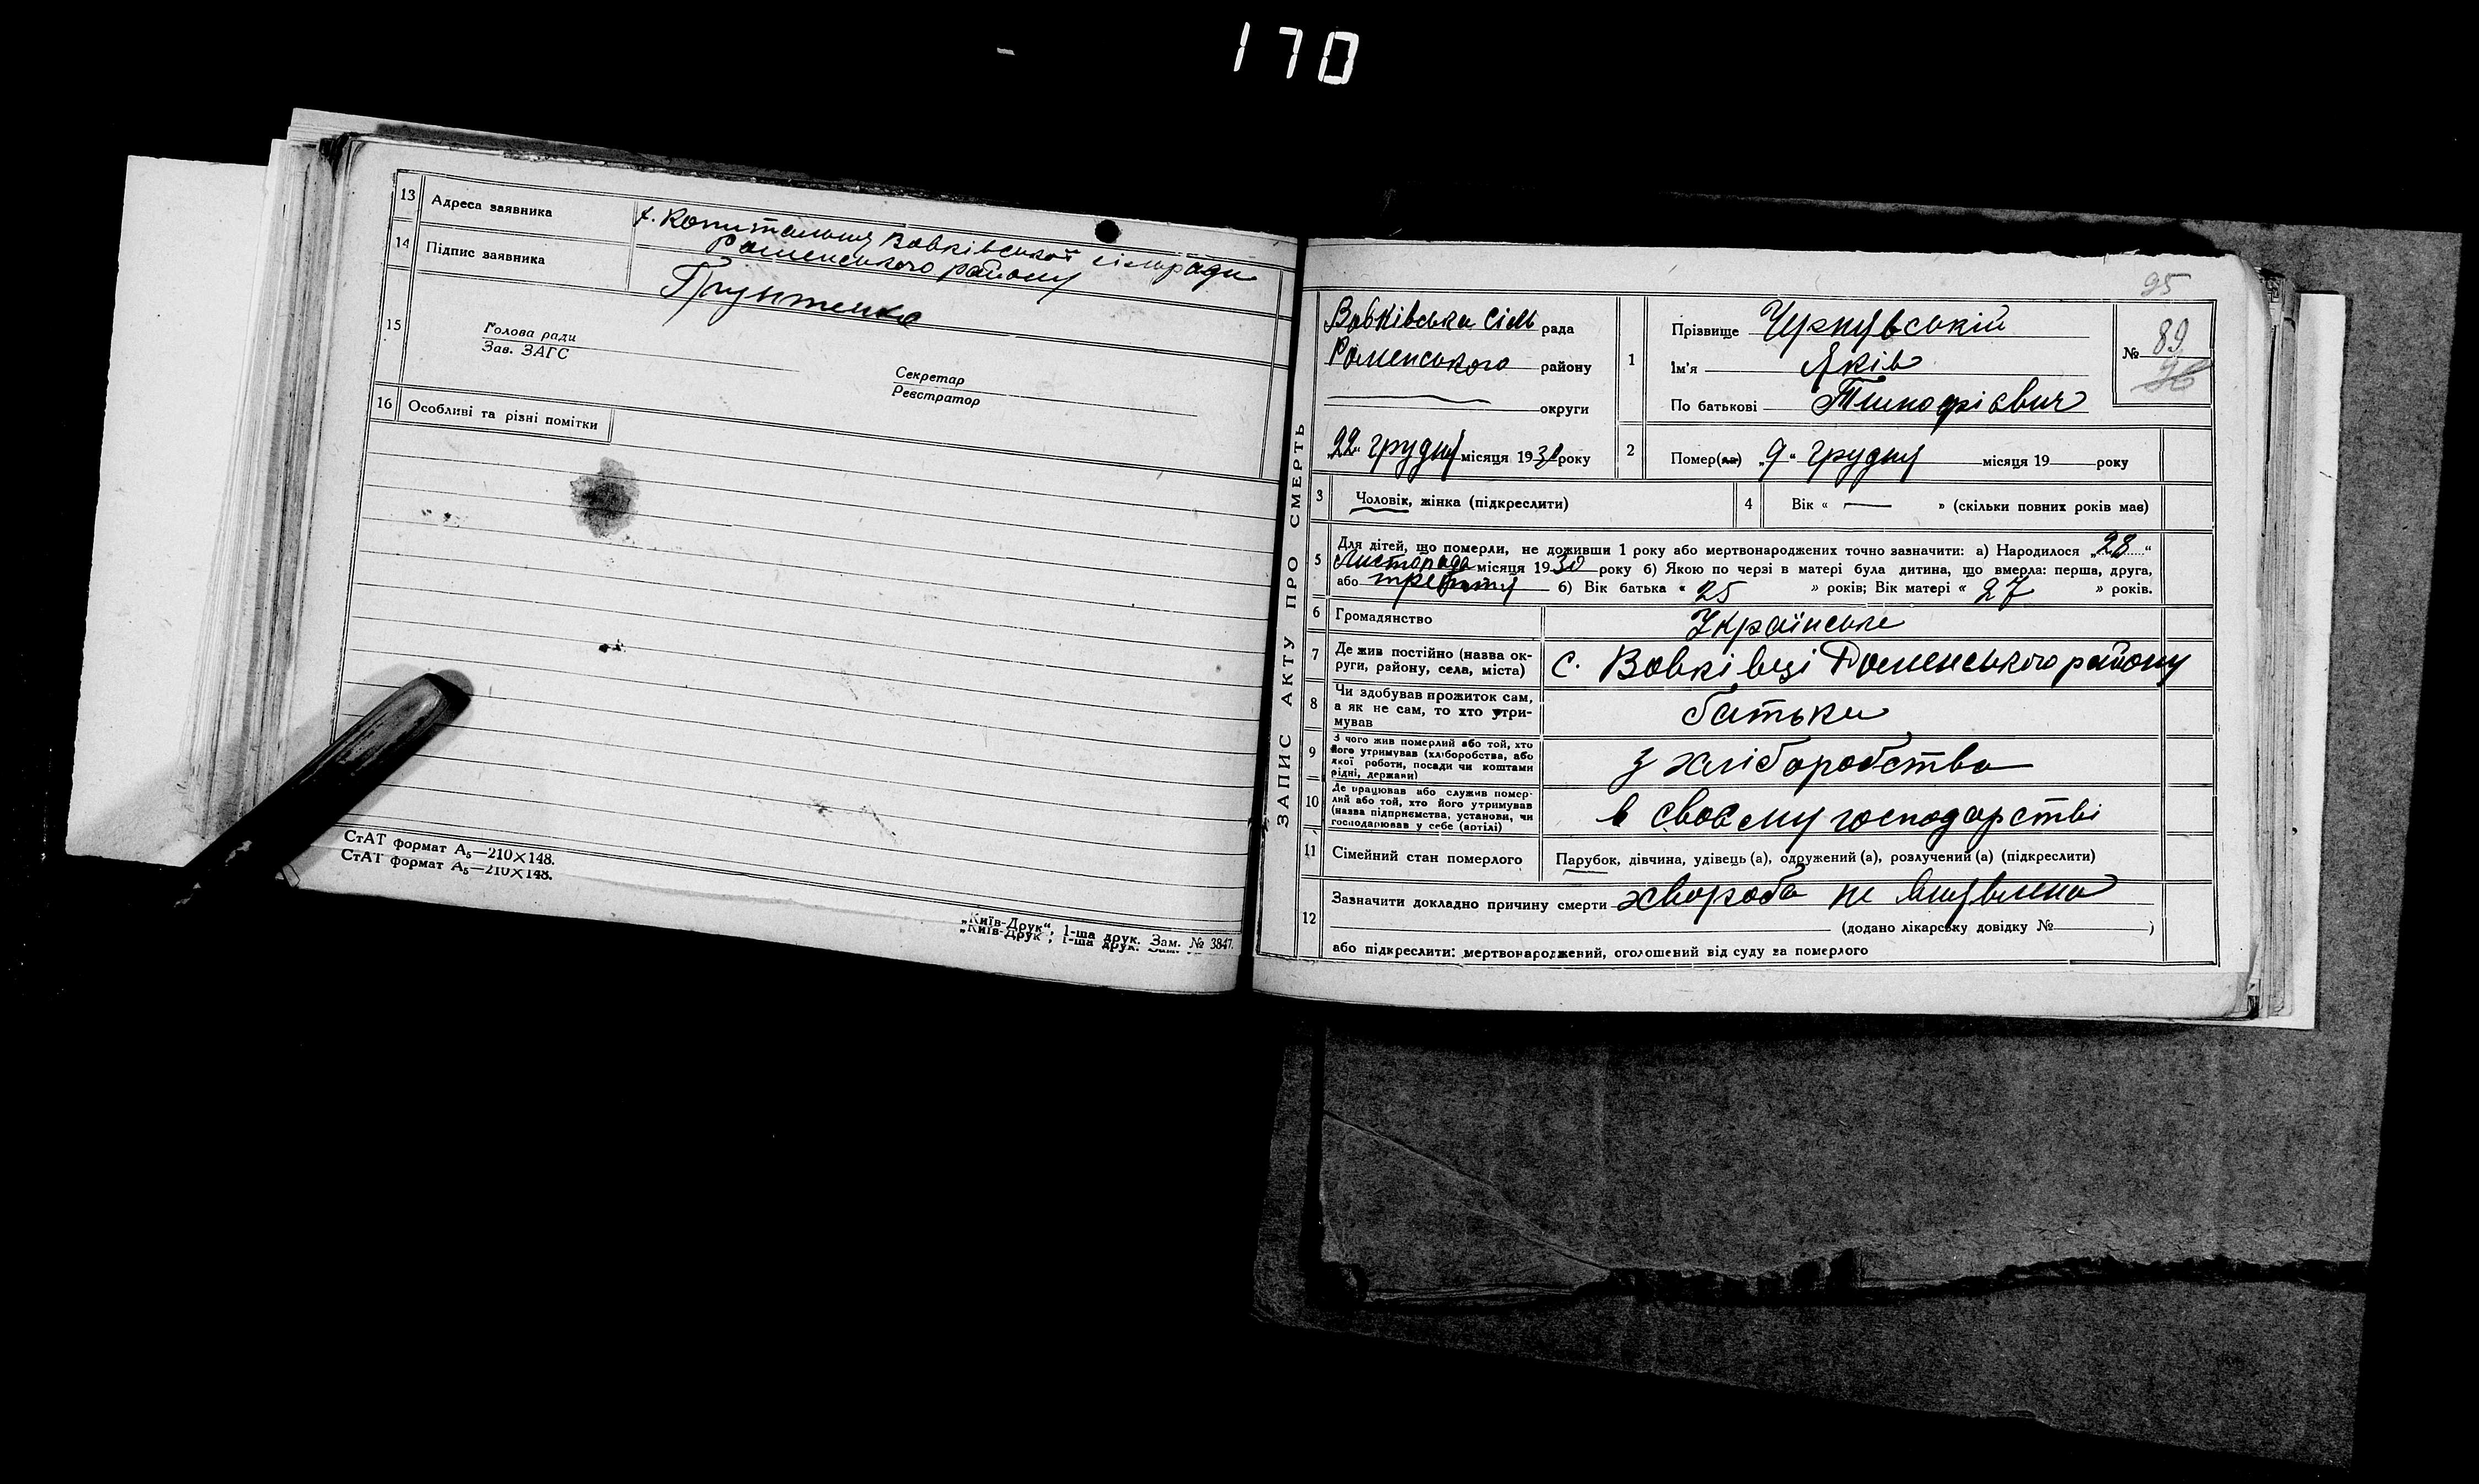 170
13 Адреса заявника х. Вовківської сільради
Роменського району
14 Підпис заявника
15 Голова ради
Зав. ЗАГС
Секретар
Реєстратор
16 Особливі та різні помітки
СтАТ формат А₅—210×148.
СтАТ формат А₅—210×148.
„Київ-Друк“, 1-ша друк. Зам. № 3847.
„Київ-Друк“, 1-ша друк. Зам. №
95
ЗАПИС АКТУ ПРО СМЕРТЬ
Вовківська сіль рада
Роменського району
округи
„22“ грудня місяця 1930 року
1 Прізвище
Ім'я Яків
По батькові Тимофієвич
№ 89
2 Помер(ла) „9“ грудня місяця 19 року
3 Чоловік, жінка (підкреслити)
4 Вік « — » (скільки повних років мав)
5 Для дітей, що померли, не доживши 1 року або мертвонароджених точно зазначити: а) Народилося „28“
Листопада місяця 1930 року б) Якою по черзі в матері була дитина, що вмерла: перша, друга,
або третя б) Вік батька « 25 » років; Вік матері « 27 » років.
6 Громадянство Українське
7 Де жив постійно (назва ок-
руги, району, села, міста) с. Вовківці Роменського району
8 Чи здобував прожиток сам,
а як не сам, то хто утри-
мував батьки
9 З чого жив померлий або той, хто
його утримував (хліборобства, або
якої роботи, посади чи коштами
рідні, держави) з хліборобства
10 Де працював або служив помер-
лий або той, хто його утримував
(назва підприємства, установи, чи
господарював у себе (артілі) в своєму господарстві
11 Сімейний стан померлого Парубок, дівчина, удівець (а), одружений (а), розлучений (а) (підкреслити)
12 Зазначити докладно причину смерти хвороба не виявлена
(додано лікарську довідку № )
або підкреслити: мертвонароджений, оголошений від суду за померлого